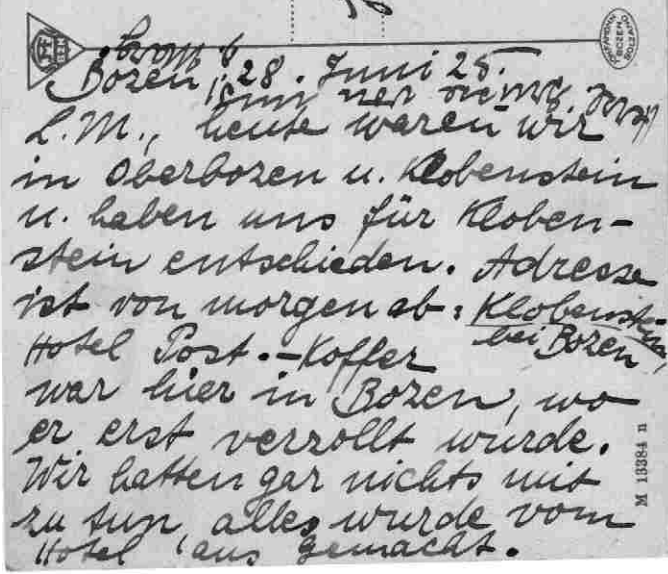 Bozen, 28. Juni 25.
L. M., heute waren wir
in Oberbozen u. Klobenstein
u. haben uns für Kloben-
stein entschieden. Adresse
ist von morgen ab: Klobenstein,
bei Bozen
Hotel Post. – Koffer
war hier in Bozen, wo
er erst verzollt wurde.
Wir hatten gar nichts mit
zu tun, alles wurde vom
Hotel aus gemacht.
M 13384 n
BOZEN
BOLZANO